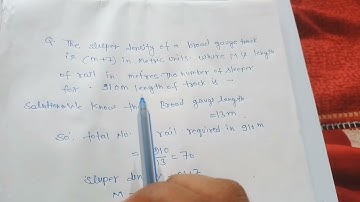 Q. The sleeper density of a broad gauge track
is (m+7) in metric units. where M is length
of rail in metres. The number of sleeper
for 910m length of track is -
Solution:- We know that Broad gauge length
= 13m
So, total No. rail required in 910m
= 910/13 = 70
sleeper
M =